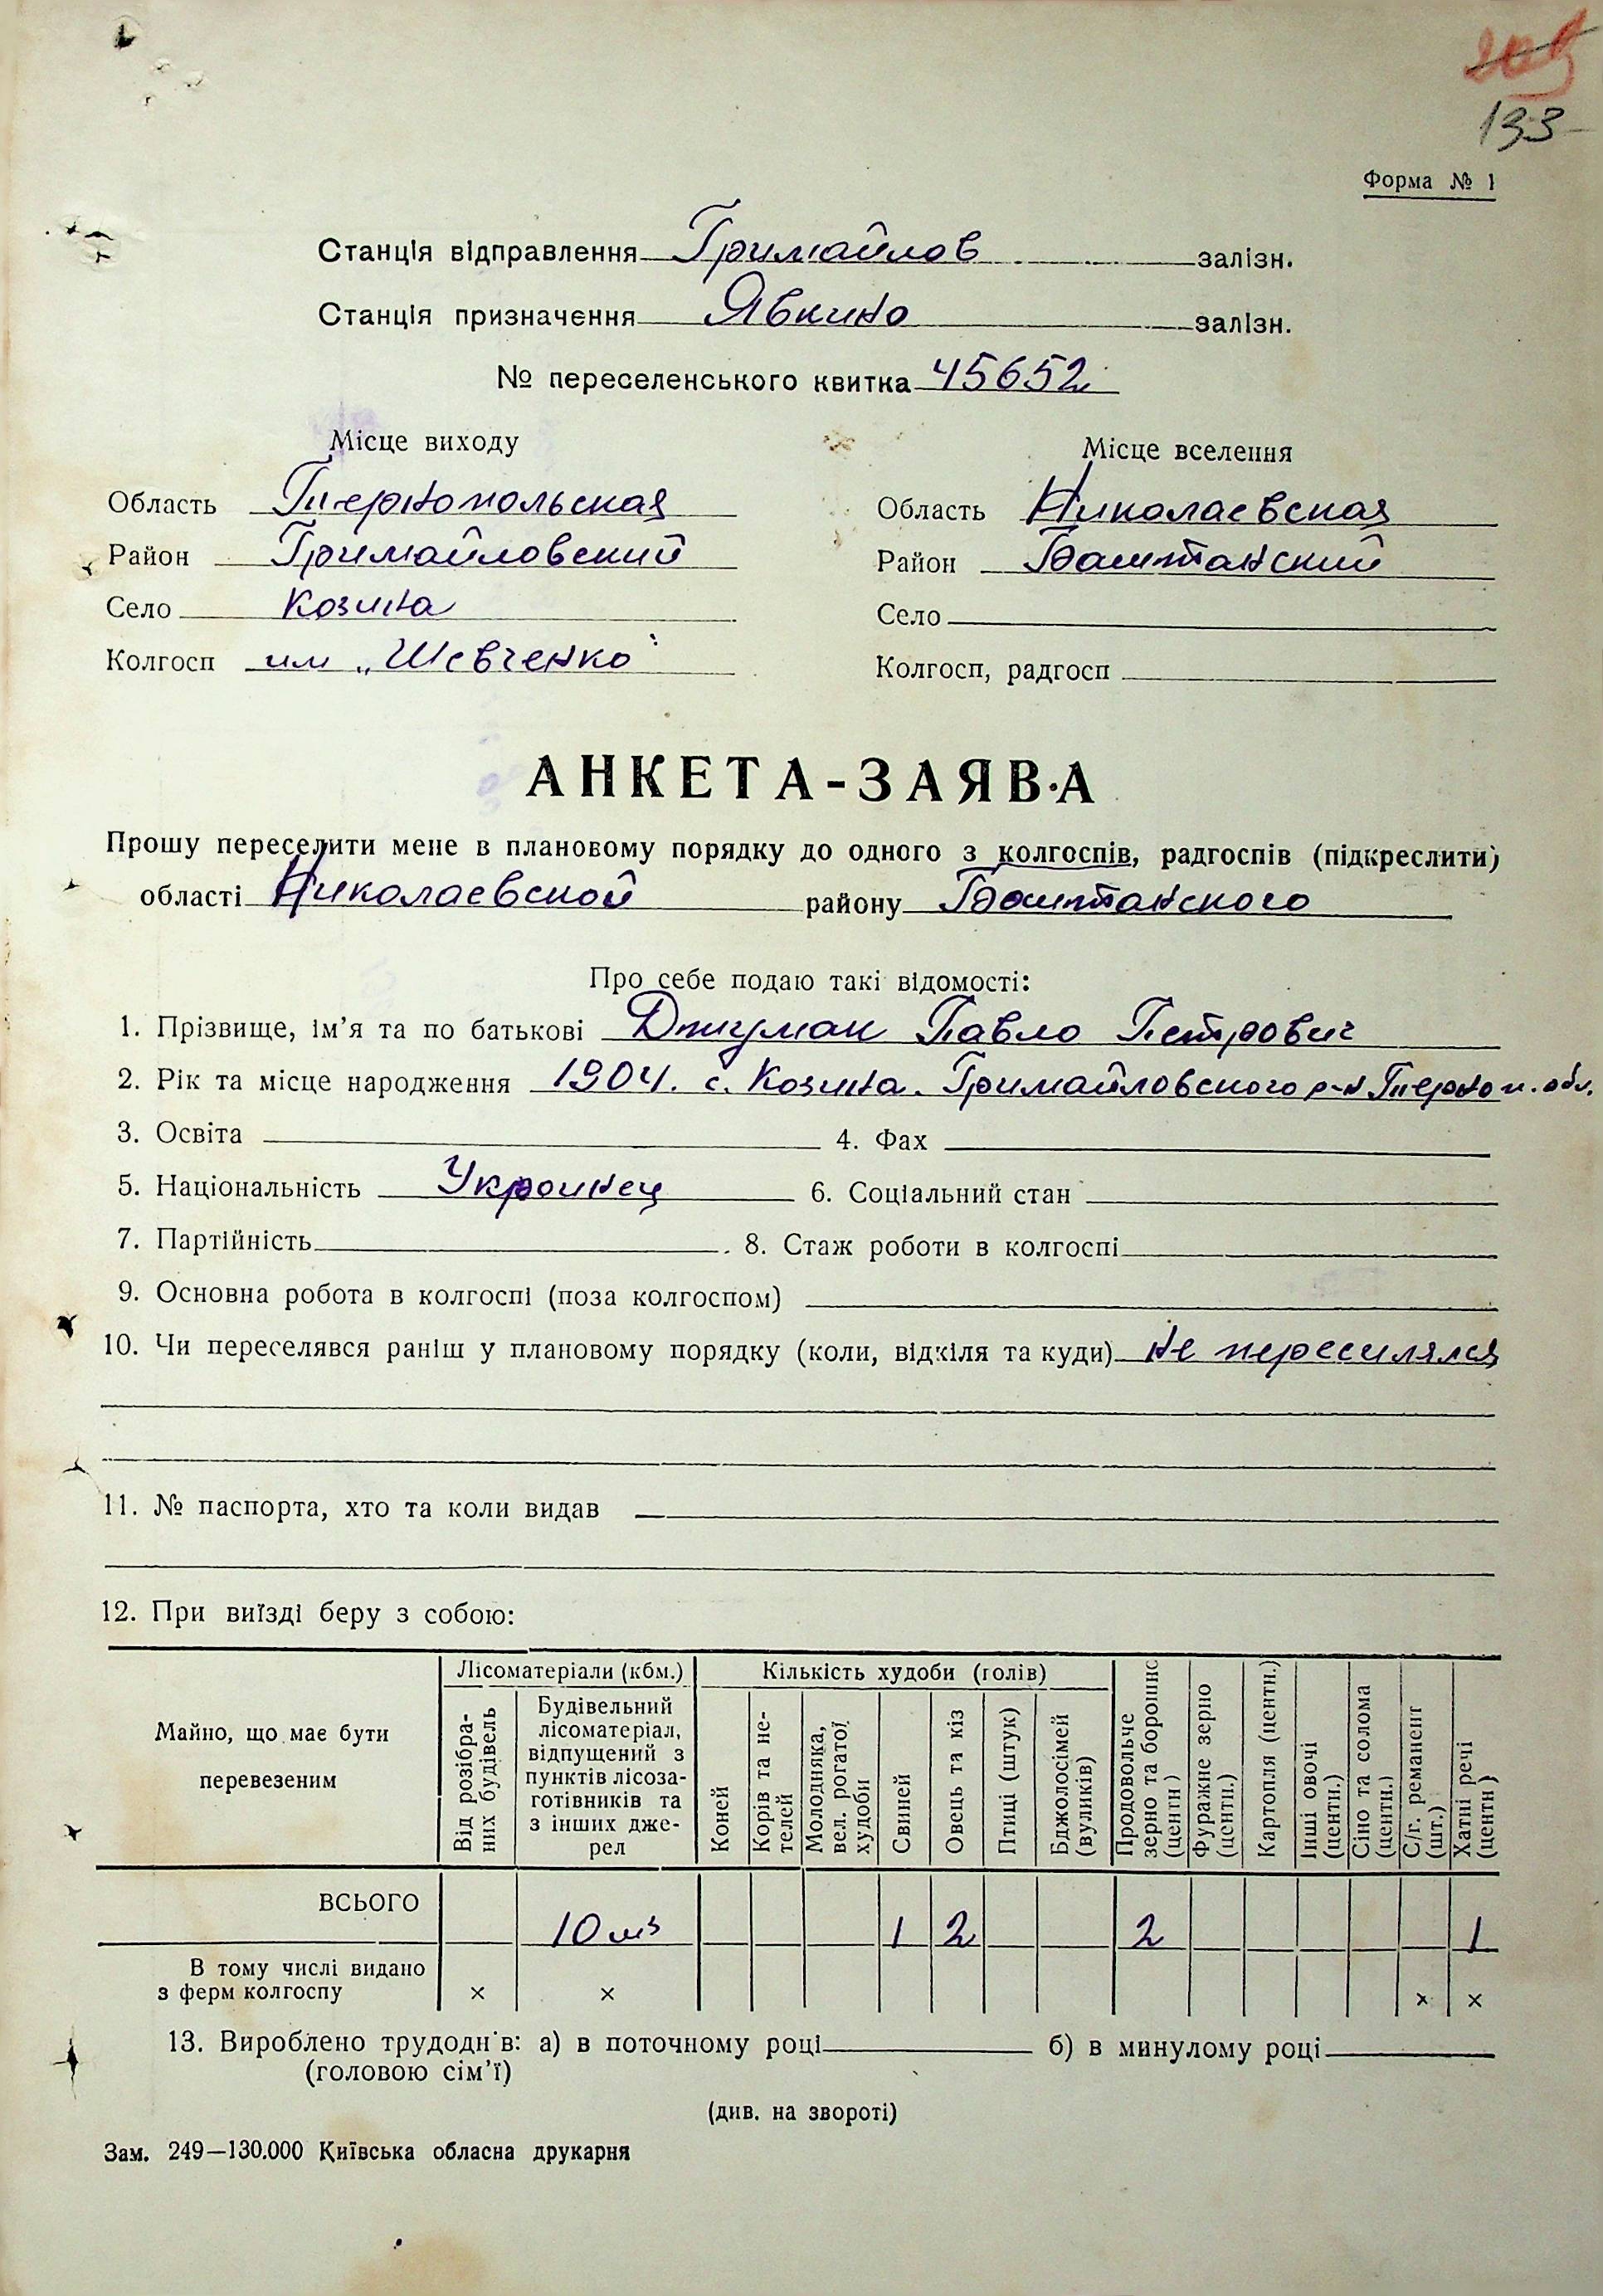 133
Форма № 1
Станція відправлення Гримайлов залізн.
Станція призначення Явкино залізн.
№ переселенського квитка 45652
Місце виходу
Місце вселення
Область Тернопольская
Область Николаевская
Район Гримайловский
Район Баштанский
Село Козина
Село
Колгосп им „Шевченко"
Колгосп, радгосп
АНКЕТА-ЗАЯВА
Прошу переселити мене в плановому порядку до одного з колгоспів, радгоспів (підкреслити)
області Николаевской району Баштанского
Про себе подаю такі відомості:
1. Прізвище, ім'я та по батькові Джуман Павло Петрович
2. Рік та місце народження 1904. с. Козина. Гримайловского р-н Терноп. обл.
3. Освіта 4. Фах
5. Національність Украинец 6. Соціальний стан
7. Партійність 8. Стаж роботи в колгоспі
9. Основна робота в колгоспі (поза колгоспом)
10. Чи переселявся раніш у плановому порядку (коли, відкіля та куди) не пересилялся
11. № паспорта, хто та коли видав
12. При виїзді беру з собою:
Майно, що має бути
перевезеним
Лісоматеріали (кбм.)
Від розібра-
них будівель
Будівельний
лісоматеріал,
відпущений з
пунктів лісоза-
готівників та
з інших дже-
рел
Кількість худоби (голів)
Коней
Корів та не-
телей
Молодняка,
вел. рогатої
худоби
Свиней
Овець та кіз
Птиці (штук)
Бджолосімей
(вуликів)
Продовольче
зерно та борошно
(центн)
Фуражне зерно
(центн.)
Картопля (центн.)
Інші овочі
(центн.)
Сіно та солома
(центн.)
С/г. реманент
(шт.)
Хатні речі
(центн)
ВСЬОГО 10 м³ 1 2 2 1
В тому числі видано
з ферм колгоспу × × × ×
13. Вироблено трудоднів: а) в поточному році б) в минулому році
(головою сім'ї)
(див. на звороті)
Зам. 249—130.000 Київська обласна друкарня